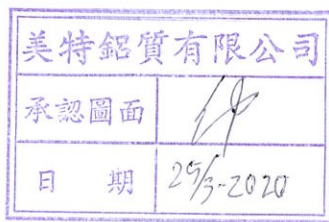 美特鋁質有限公司
承認圖面
日期 25/3-2020